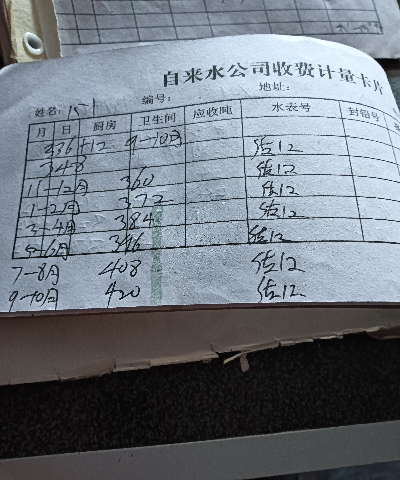 自来水公司收费计量卡片
姓名: 编号: 地址:
月 日 厨房 卫生间 应收吨 水表号 封铅号
336+12 9-10月 估12
348 估12
11-12月 360 估12
1-2月 372 估12
3-4月 384 估12
5-6月 396
7-8月 408 估12
9-10月 420 估12